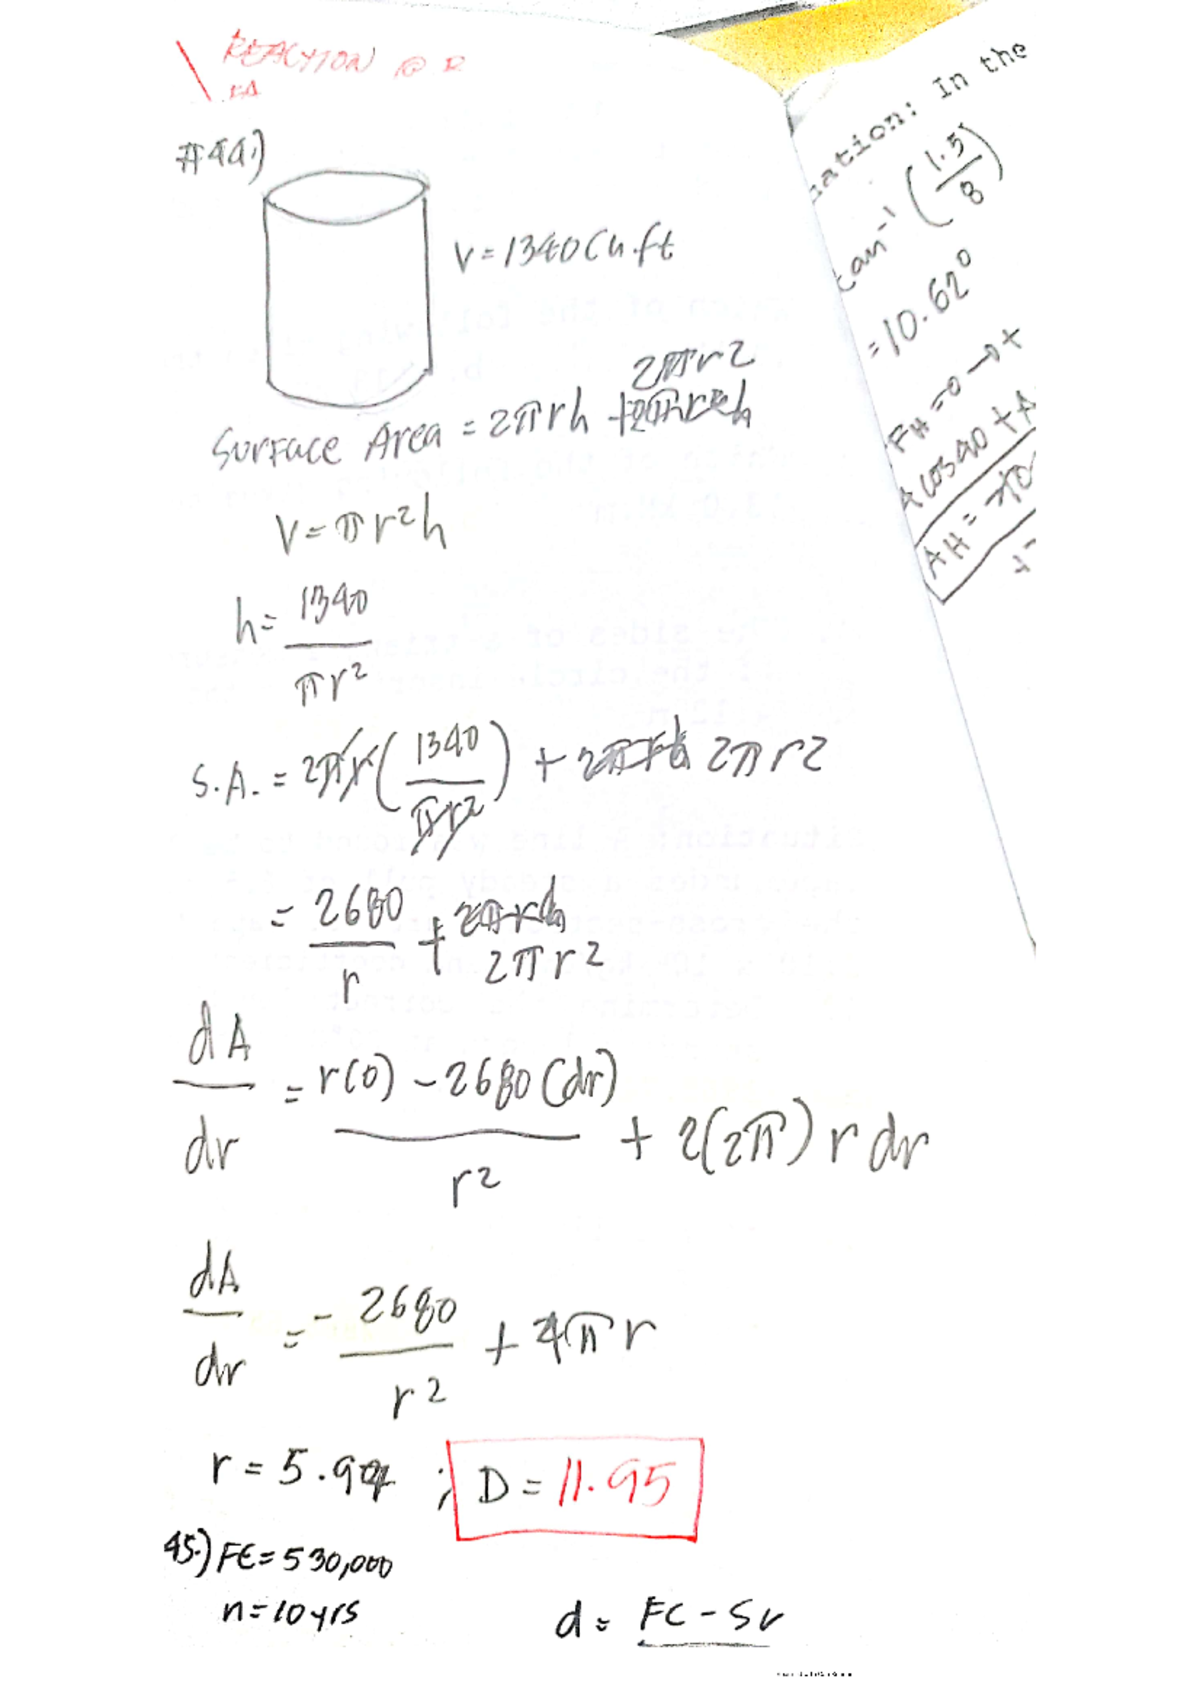 REACTION @ R
#44.)
V = 1340 Cu.ft
2πr2
Surface Area = 2πrh +
V = πr²h
h = 1340
πr²
S.A. = 2πr ( 1340 / πr² ) + 2πr2
= 2680 / r + 2πr²
dA / dr = r(0) - 2680 (dr) / r² + 2(2π) r dr
dA / dr = - 2680 / r² + 4πr
r = 5.97 ; D = 11.95
45.) FC = 530,000
n = 10 yrs
d = FC - SV
ation: In the
tan⁻¹ ( 1.5 / 8 )
= 10.62°
FH = 0 → +
A cos 40 + A
AH =